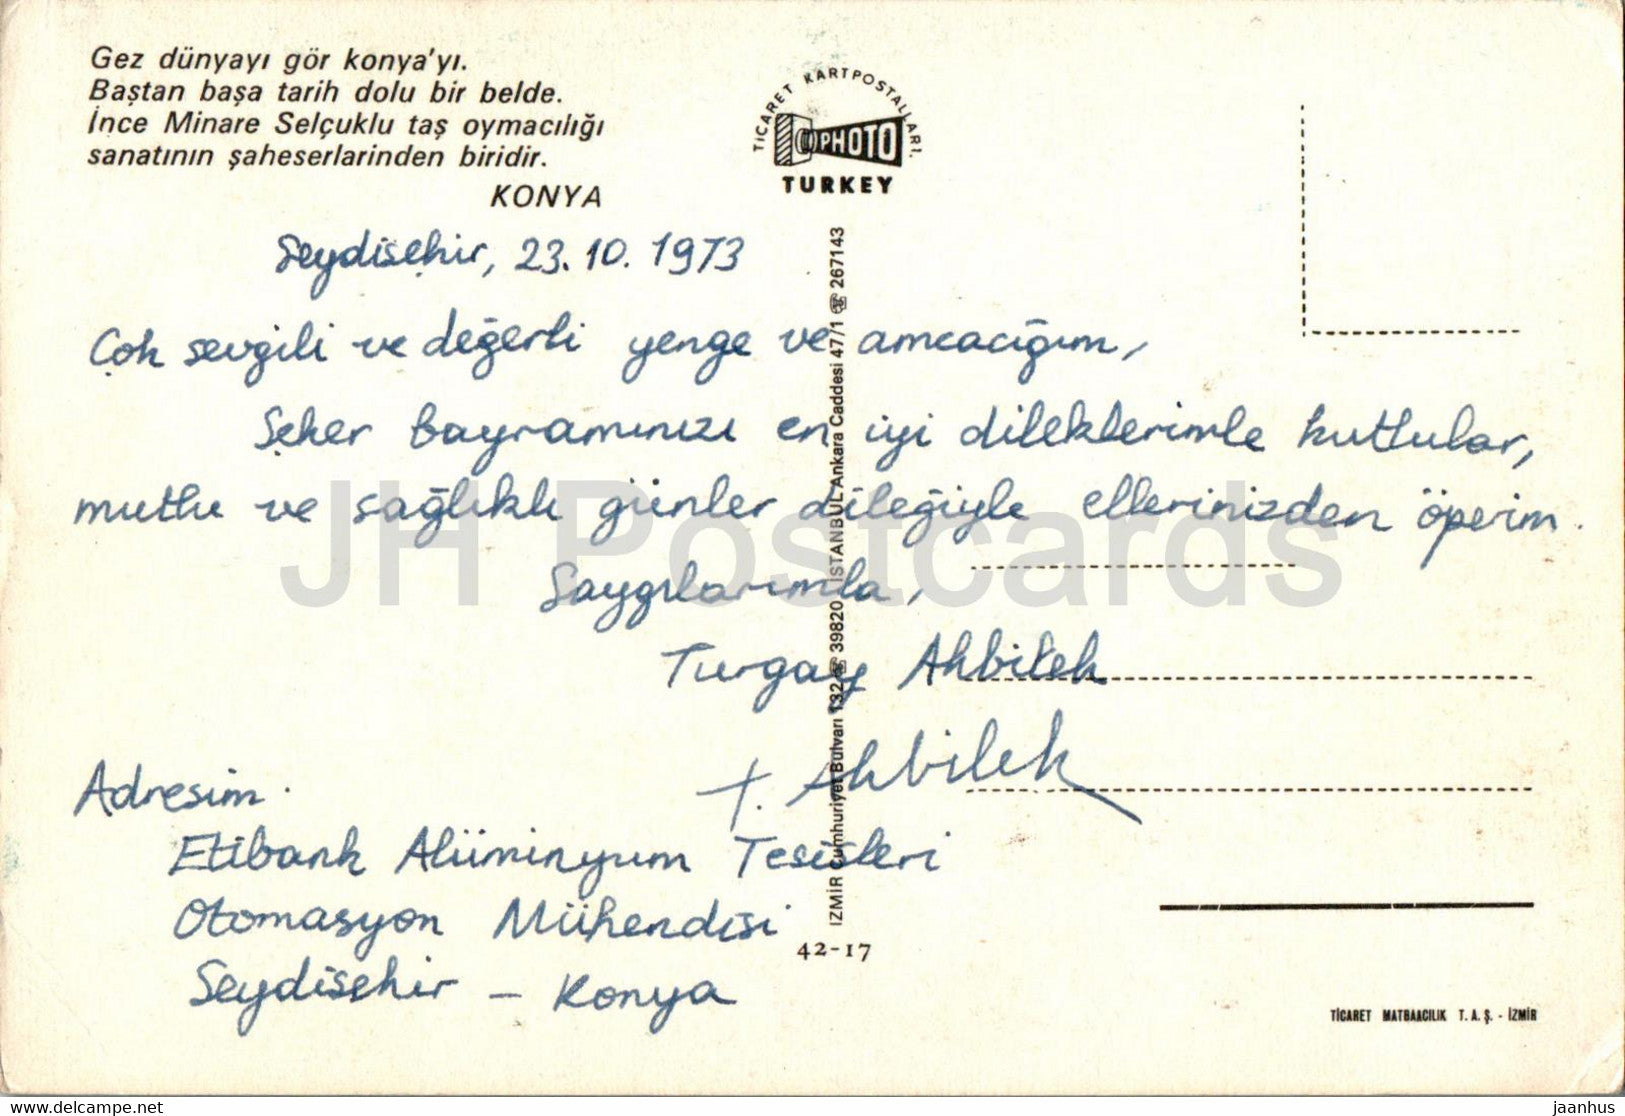 Gez dünyayı gör konya'yı.
Baştan başa tarih dolu bir belde.
İnce Minare Selçuklu taş oymacılığı
sanatının şaheserlarinden biridir.
KONYA
TİCARET KARTPOSTALLARI.
PHOTO
TURKEY
Seydişehir, 23.10.1973
Çok sevgili ve değerli yenge ve amcacığım,
Şeker Bayramınızı en iyi dileklerimle kutlular,
mutlu ve sağlıklı günler dileğiyle ellerinizden öperim.
Saygılarımla,
Turgay Akbilek
T. Akbilek
Adresim.
Etibank Alüminyum Tesisleri
Otomasyon Mühendisi
Seydişehir - Konya
İZMİR Cumhuriyet Bulvarı 132 ☎ 39820 İSTANBUL Ankara Caddesi 47/1 ☎ 267143
42-17
TİCARET MATBAACILIK T.A.Ş. - İZMİR
JH Postcards
www.delcampe.net
jaanhus